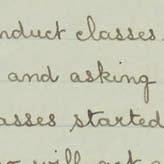 nduct classes
and asking
asses started
will get